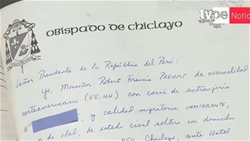 type Notici
OBISPADO DE CHICLAYO
Señor Presidente de la República del Perú:
Yo, Monseñor Robert Francis Prevost de nacionalidad
norteamericano (EE.UU.) con carné de extranjería
N° y calidad migratoria INMIGRANTE,
de edad, de estado civil soltero con domicilio
Chiclayo, ante Usted